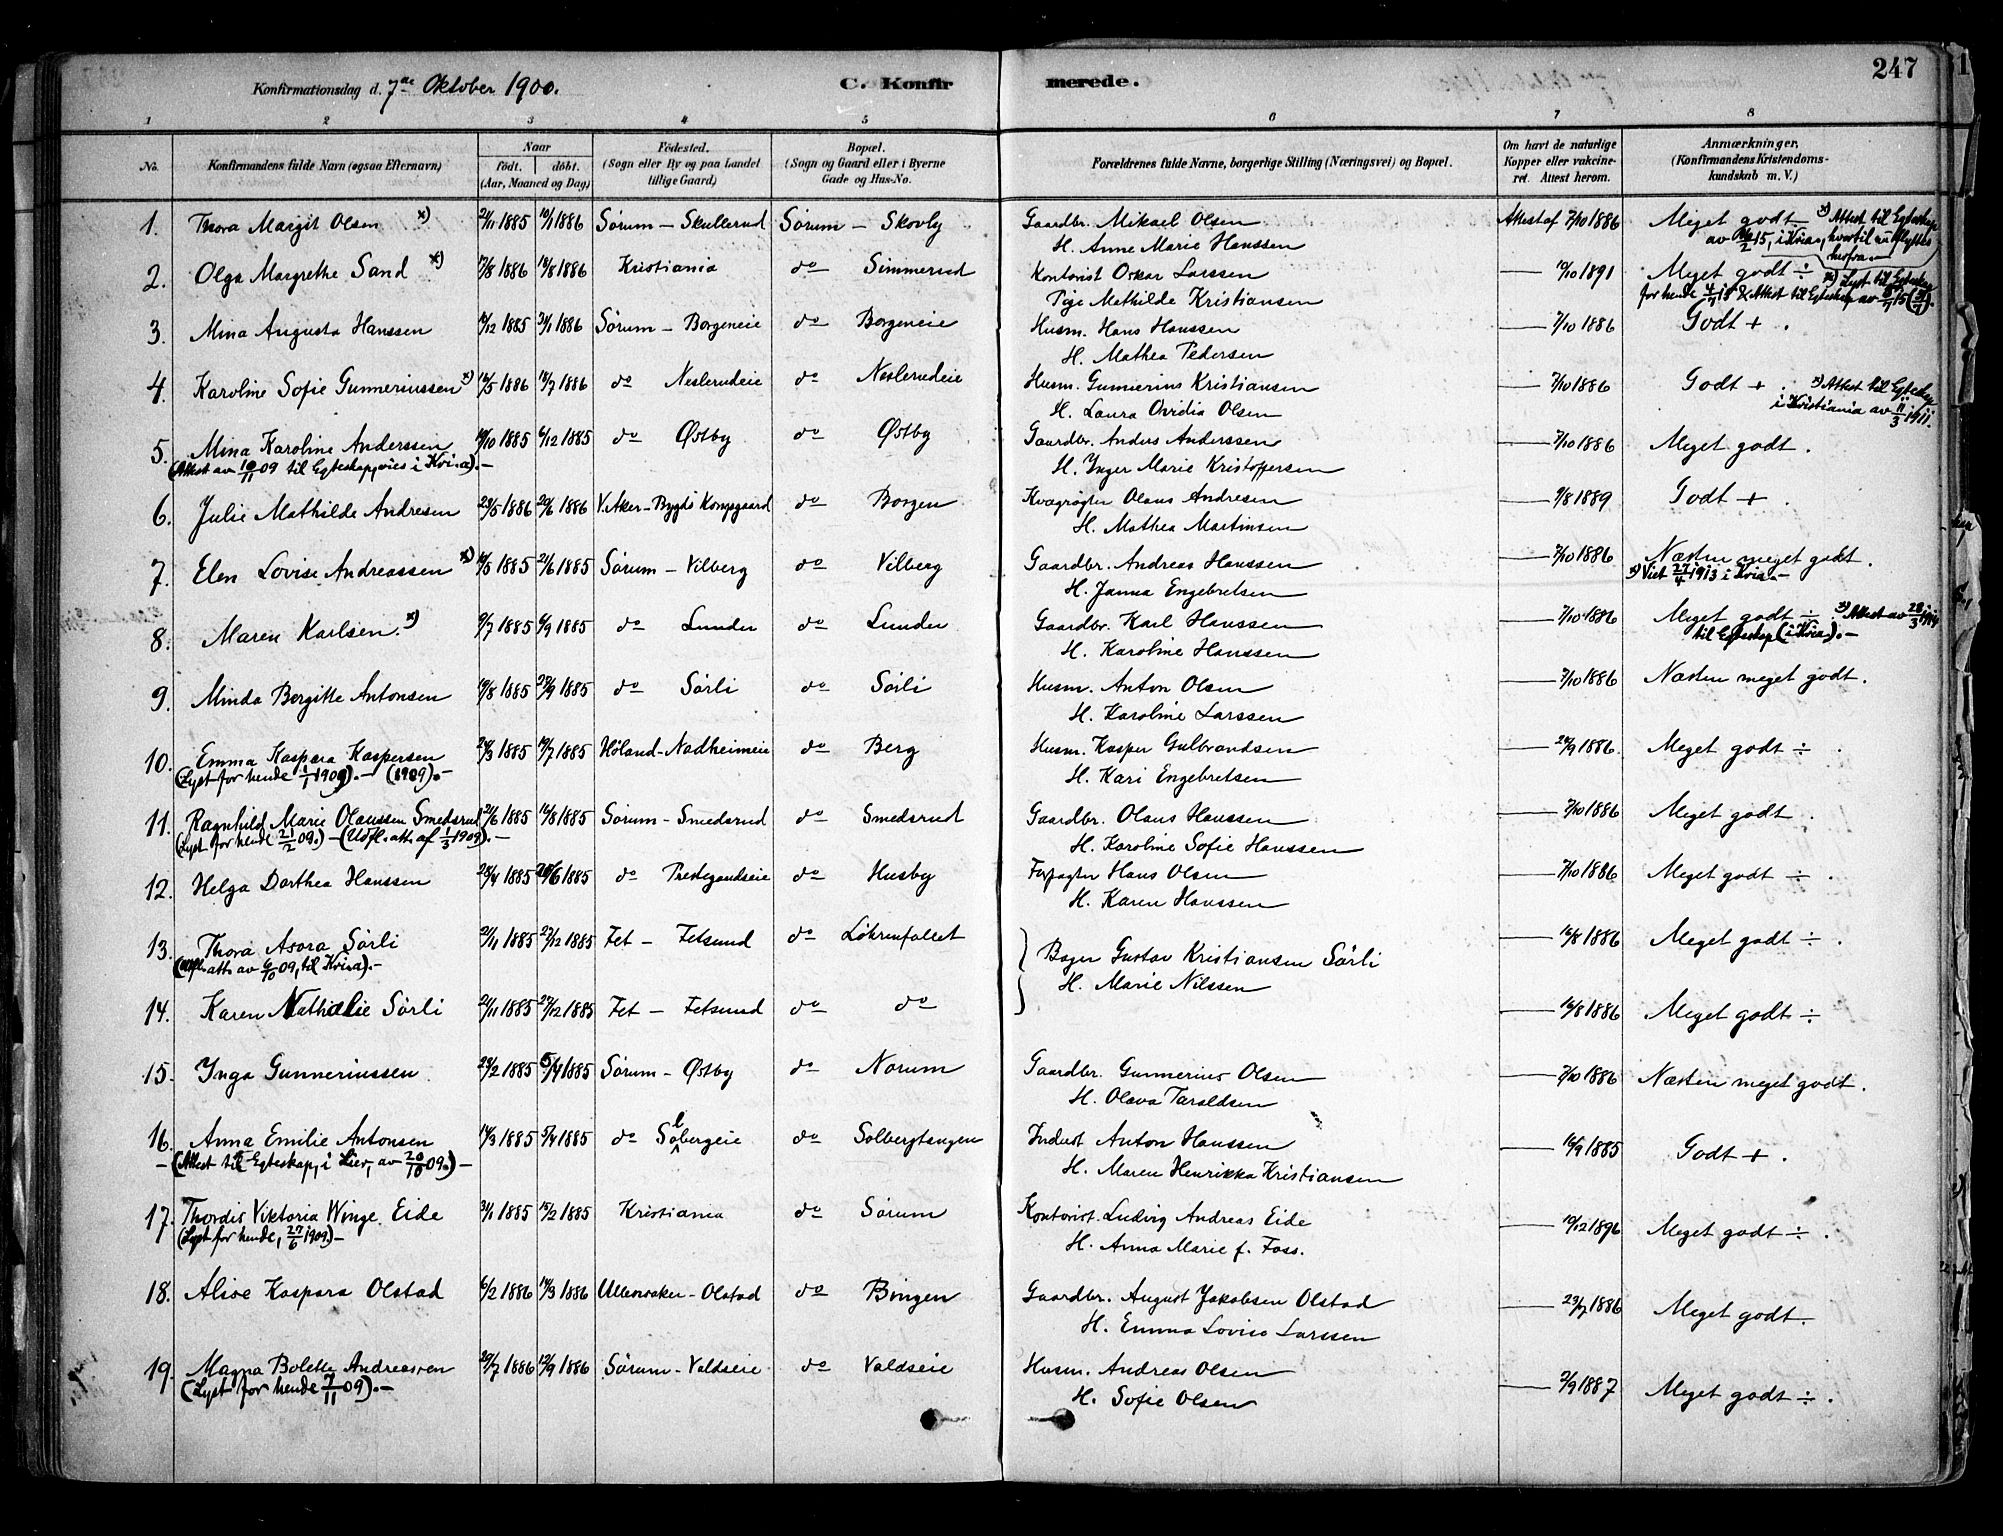 247
Konfirmationsdag d. 7de Oktober 1900. C. Konfirmerede.
1 2 3 4 5 6 7 8
No. Konfirmandens fulde Navn (ogsaa Efternavn) Naar født. døbt. (Aar, Maaned og Dag) Fødested. (Sogn eller By og paa Landet tillige Gaard) Bopæl. (Sogn og Gaard eller i Byerne Gade og Hus-No. Forældrenes fulde Navne, borgerlige Stilling (Næringsvei) og Bopæl. Om havt de naturlige Kopper eller vaccineret. Attest herom. Anmærkninger, (Konfirmandens Kristendomskundskab m. V.)
1. Thora Margit Olsen x) 2/11 1885 10/1 1886 Sørum - Skullerud Sørum - Skovly Gaardbr. Mikael Olsen Attest af 7/10 1886 Meget godt x) Attest til Egteskap
H. Anne Marie Hanssen av 15, i Kria, hvortil utflyttet herfra
2. Olga Margrethe Sand x) 17/8 1886 18/8 1886 Kristiania do Simmerud Kontorist Oskar Larssen 10/10 1891 Meget godt ÷ x) Lyst til Egteskap
Pige Mathilde Kristiansen for hende 4/7 15 & Attest til Egteskap av 15
3. Mina Augusta Hanssen 14/12 1885 31/1 1886 Sørum - Borgeneie do Borgeneie Husm. Hans Hanssen 7/10 1886 Godt + .
H. Mathea Pedersen
4. Karoline Sofie Gunneriussen x) 16/5 1886 18/7 1886 do Neslerudeie do Neslerudeie Husm. Gunnerius Kristiansen 7/10 1886 Godt + . x) Attest til Egteskap
H. Laura Ovidia Olsen i Kristiania av 11/3 1911.
5. Mina Karoline Anderssen 10/10 1885 6/12 1885 do Østby do Østby Gaardbr. Anders Anderssen 7/10 1886 Meget godt.
(Attest av 10/11 09 til Egteskap, vies i Kria). - H. Inger Marie Kristoffersen
6. Julie Mathilde Andresen 23/5 1886 20/6 1886 V. Aker - Bygdø Kongsgaard do Borgen Kvægrøgter Olaus Andresen 9/8 1889 Godt + .
H. Mathea Martinsen
7. Elen Lovise Andreassen x) 10/5 1885 21/6 1885 Sørum - Vilberg do Vilberg Gaardbr. Andreas Hanssen 7/10 1886 Næsten meget godt.
H. Janna Engebretsen x) Viet 27/4 1913 i Kria. -
8. Maren Karlsen. x) 9/7 1885 6/9 1885 do Lunder do Lunder Gaardbr. Karl Hanssen 7/10 1886 Meget godt ÷ . x) Attest av 28/3 1914
H. Karoline Hanssen til Egteskap (i Kria). -
9. Minda Bergitte Antonsen 10/8 1885 28/9 1885 do Sørli do Sørli Husm. Anton Olsen 7/10 1886 Næsten meget godt.
H. Karoline Larssen
10. Emma Kaspara Kaspersen 26/3 1885 19/7 1885 Høland - Nadheimeie do Berg Husm. Kasper Gulbrandsen 24/9 1886. Meget godt ÷ .
(Lyst for hende 1/1 1909). - (1909). - H. Kari Engebretsen
11. Ragnhild Marie Olaussen Smedsrud 21/6 1885 16/8 1885 Sørum - Smedsrud do Smedsrud Gaardbr. Olaus Hanssen 7/10 1886 Meget godt .
(Lyst for hende 21/2 09.) - (Udfl. att. af 1/3 1909). - H. Karoline Sofie Hanssen
12. Helga Dorthea Hanssen 28/4 1885 28/6 1885 do Prestegaardseie do Husby Forpagter Hans Olsen 7/10 1886 Meget godt ÷ .
H. Karen Hanssen
13. Thora Asora Sørli 21/11 1885 27/12 1885 Fet - Fetsund do Løkrenfallet Bager Gustav Kristiansen Sørli 16/8 1886 Meget godt ÷ .
(Utfl. att. av 09, til Kria). - H. Marie Nilssen
14. Karen Nathalie Sørli 21/11 1885 27/12 1885 Fet - Fetsund do do 16/8 1886 Meget godt ÷
15. Inga Gunneriussen 23/2 1885 5/4 1885 Sørum - Østby do Norum Gaardbr. Gunnerius Olsen 7/10 1886 Næsten meget godt.
H. Olava Taraldsen
16. Anna Emilie Antonsen 14/3 1885 5/4 1885 do Solbergeie do Solbergtangen Inderst Anton Hanssen 16/9 1885 Godt + .
- (Attest til Egteskap, i Lier, av 20/10 09.) - H. Maren Henrikka Kristiansen
17. Thordis Viktoria Winge Eide 3/1 1885 15/2 1885 Kristiania do Sørum Kontorist. Ludvig Andreas Eide 10/12 1896 Meget godt ÷ .
(Lyst for hende, 27/6 1909) - H. Anna Marie f. Foss.
18. Alise Kaspara Olstad 6/2 1886 14/3 1886 Ullensaker - Olstad do Bingen Gaardbr. August Jakobsen Olstad 23/7 1886 Meget godt.
H. Emma Lovise Larssen
19. Magna Bolette Andreassen 20/7 1886 12/9 1886 Sørum - Valdseie do Valdseie Husm. Andreas Olsen 2/9 1887 Meget godt ÷ .
(Lyst for hende 7/11 09). - H. Sofie Olsen